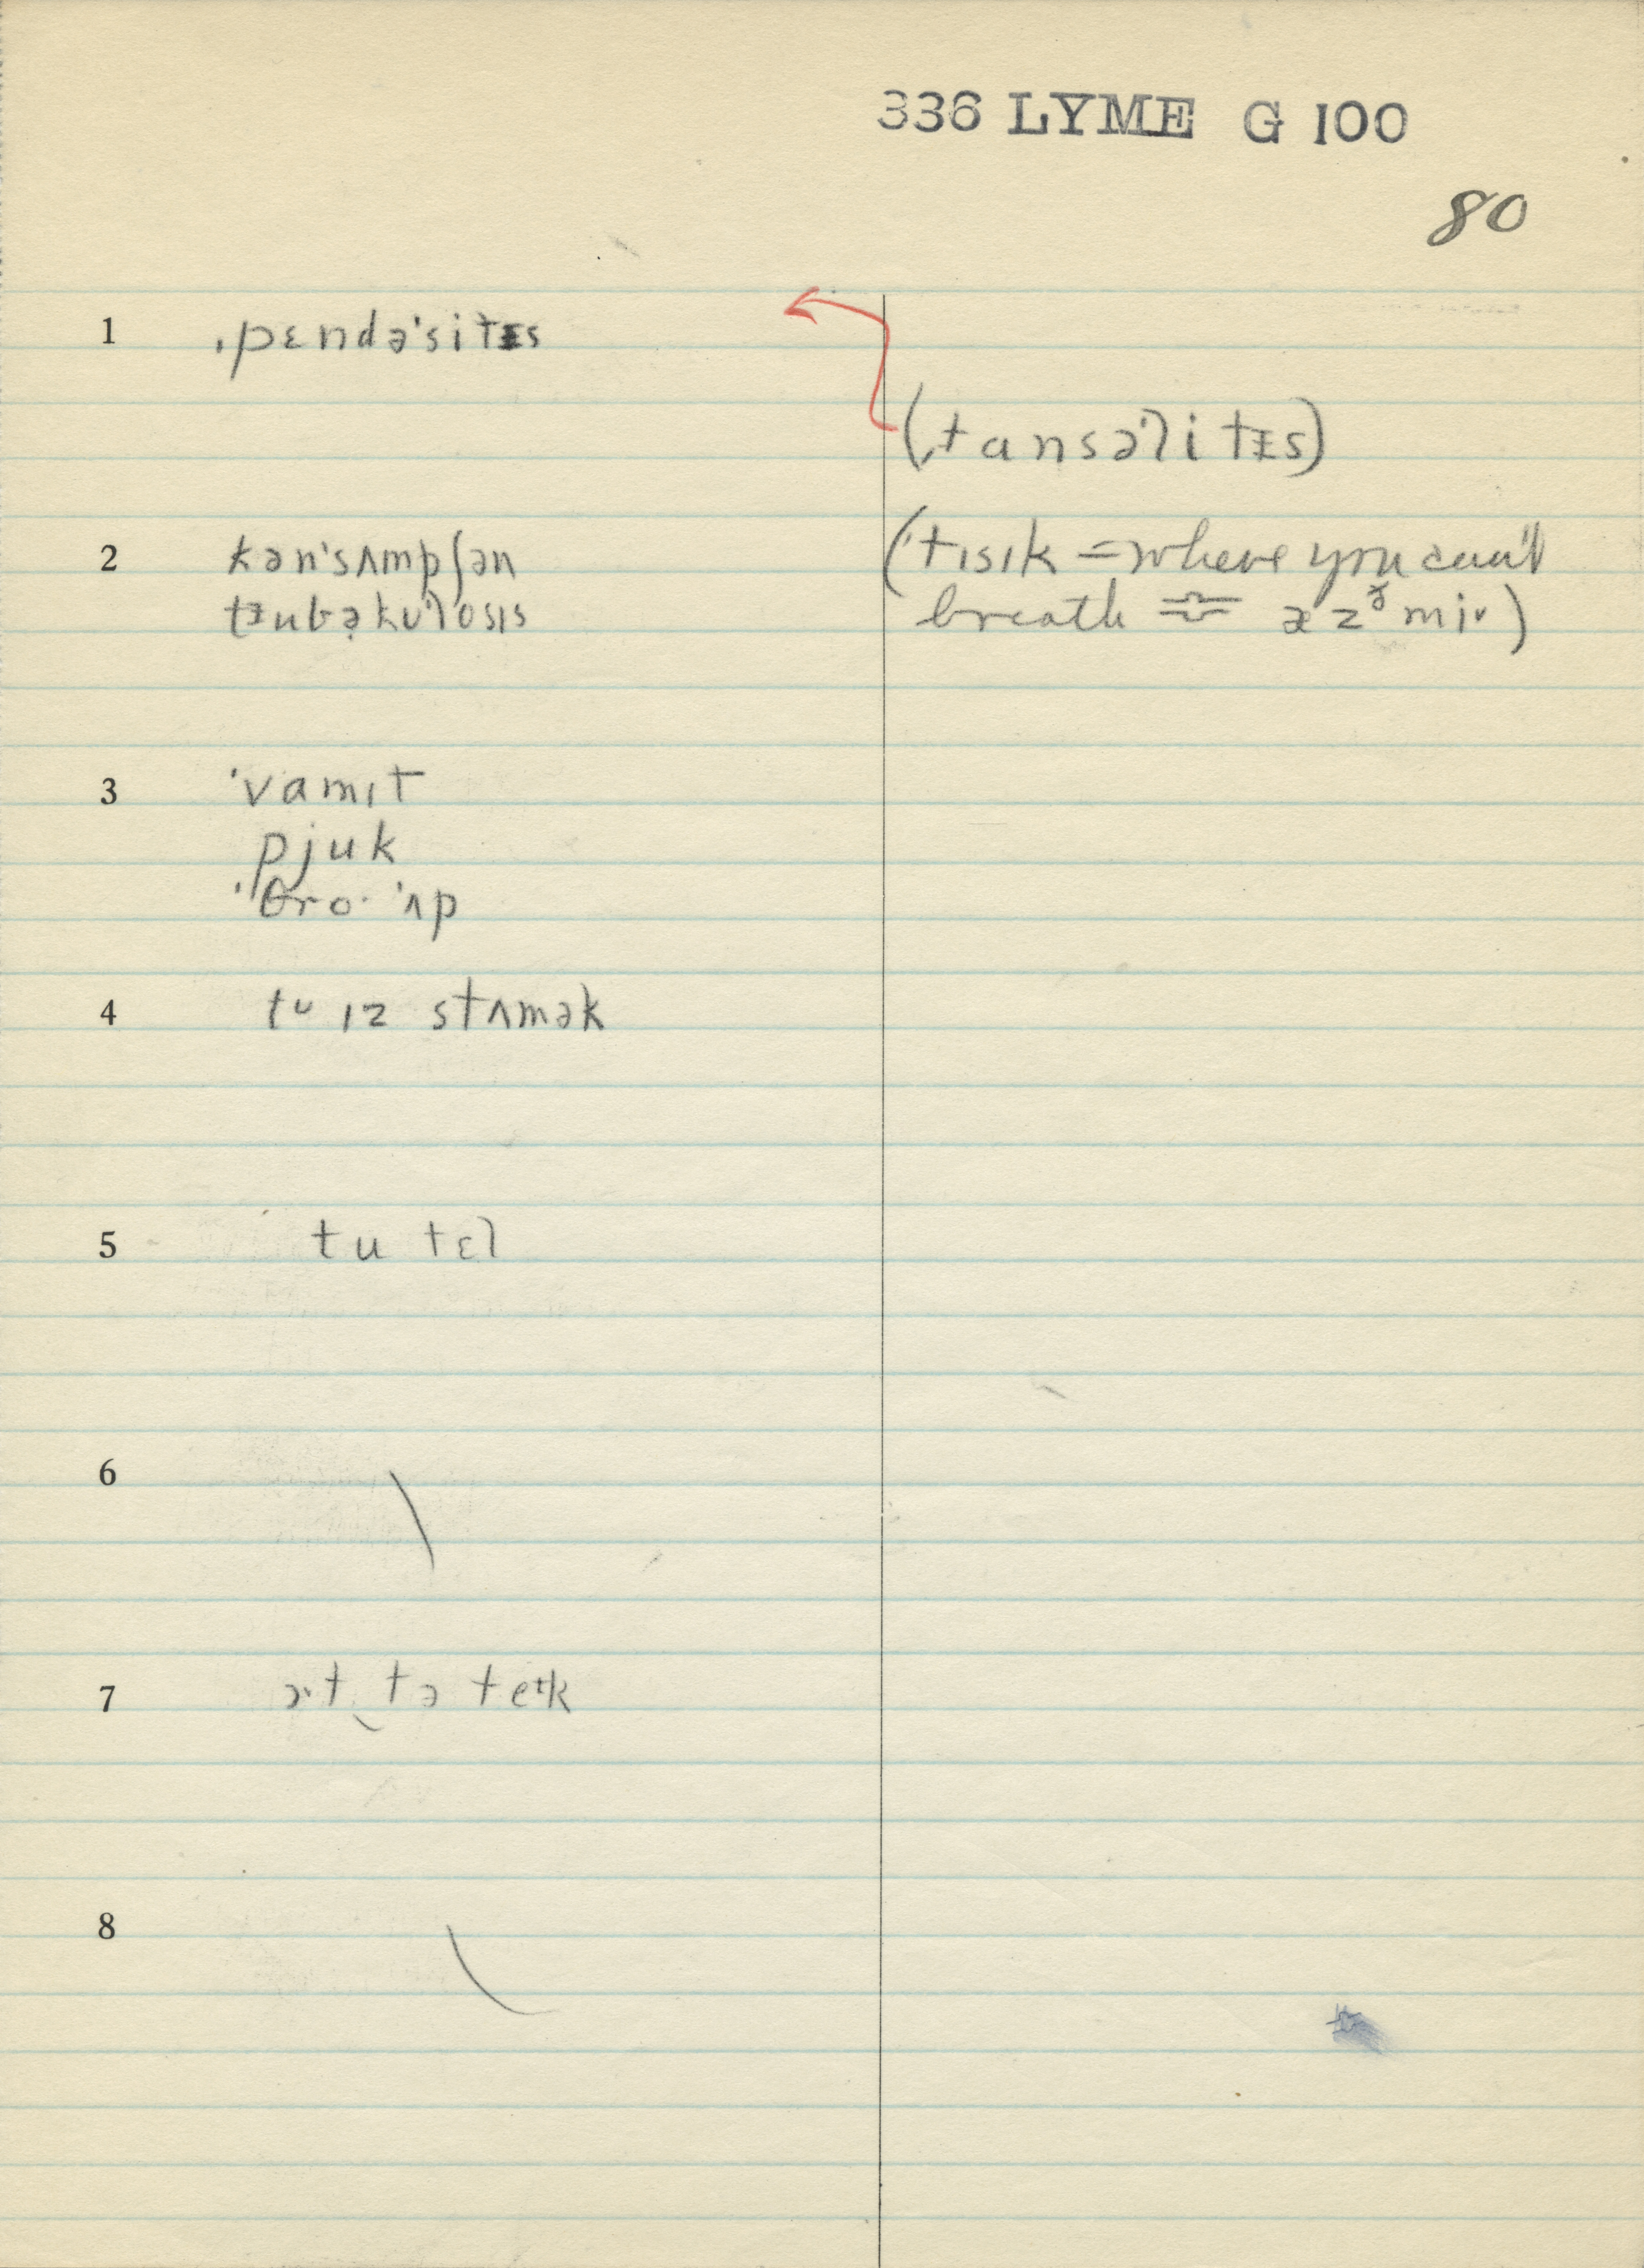 336 LYME G 100
80
1 ˌpɛndəˈsitɪs
(ˌtansəˈlitɪs)
2 kənˈsʌmpʃən
(ˈtɪsɪk = where you can't
breath
3 ˈvamɪt
pjuk
ˈθro· ˈʌp
4 tu ɪz stʌmək
5 tu tɛl
6
7 tə teɪk
8